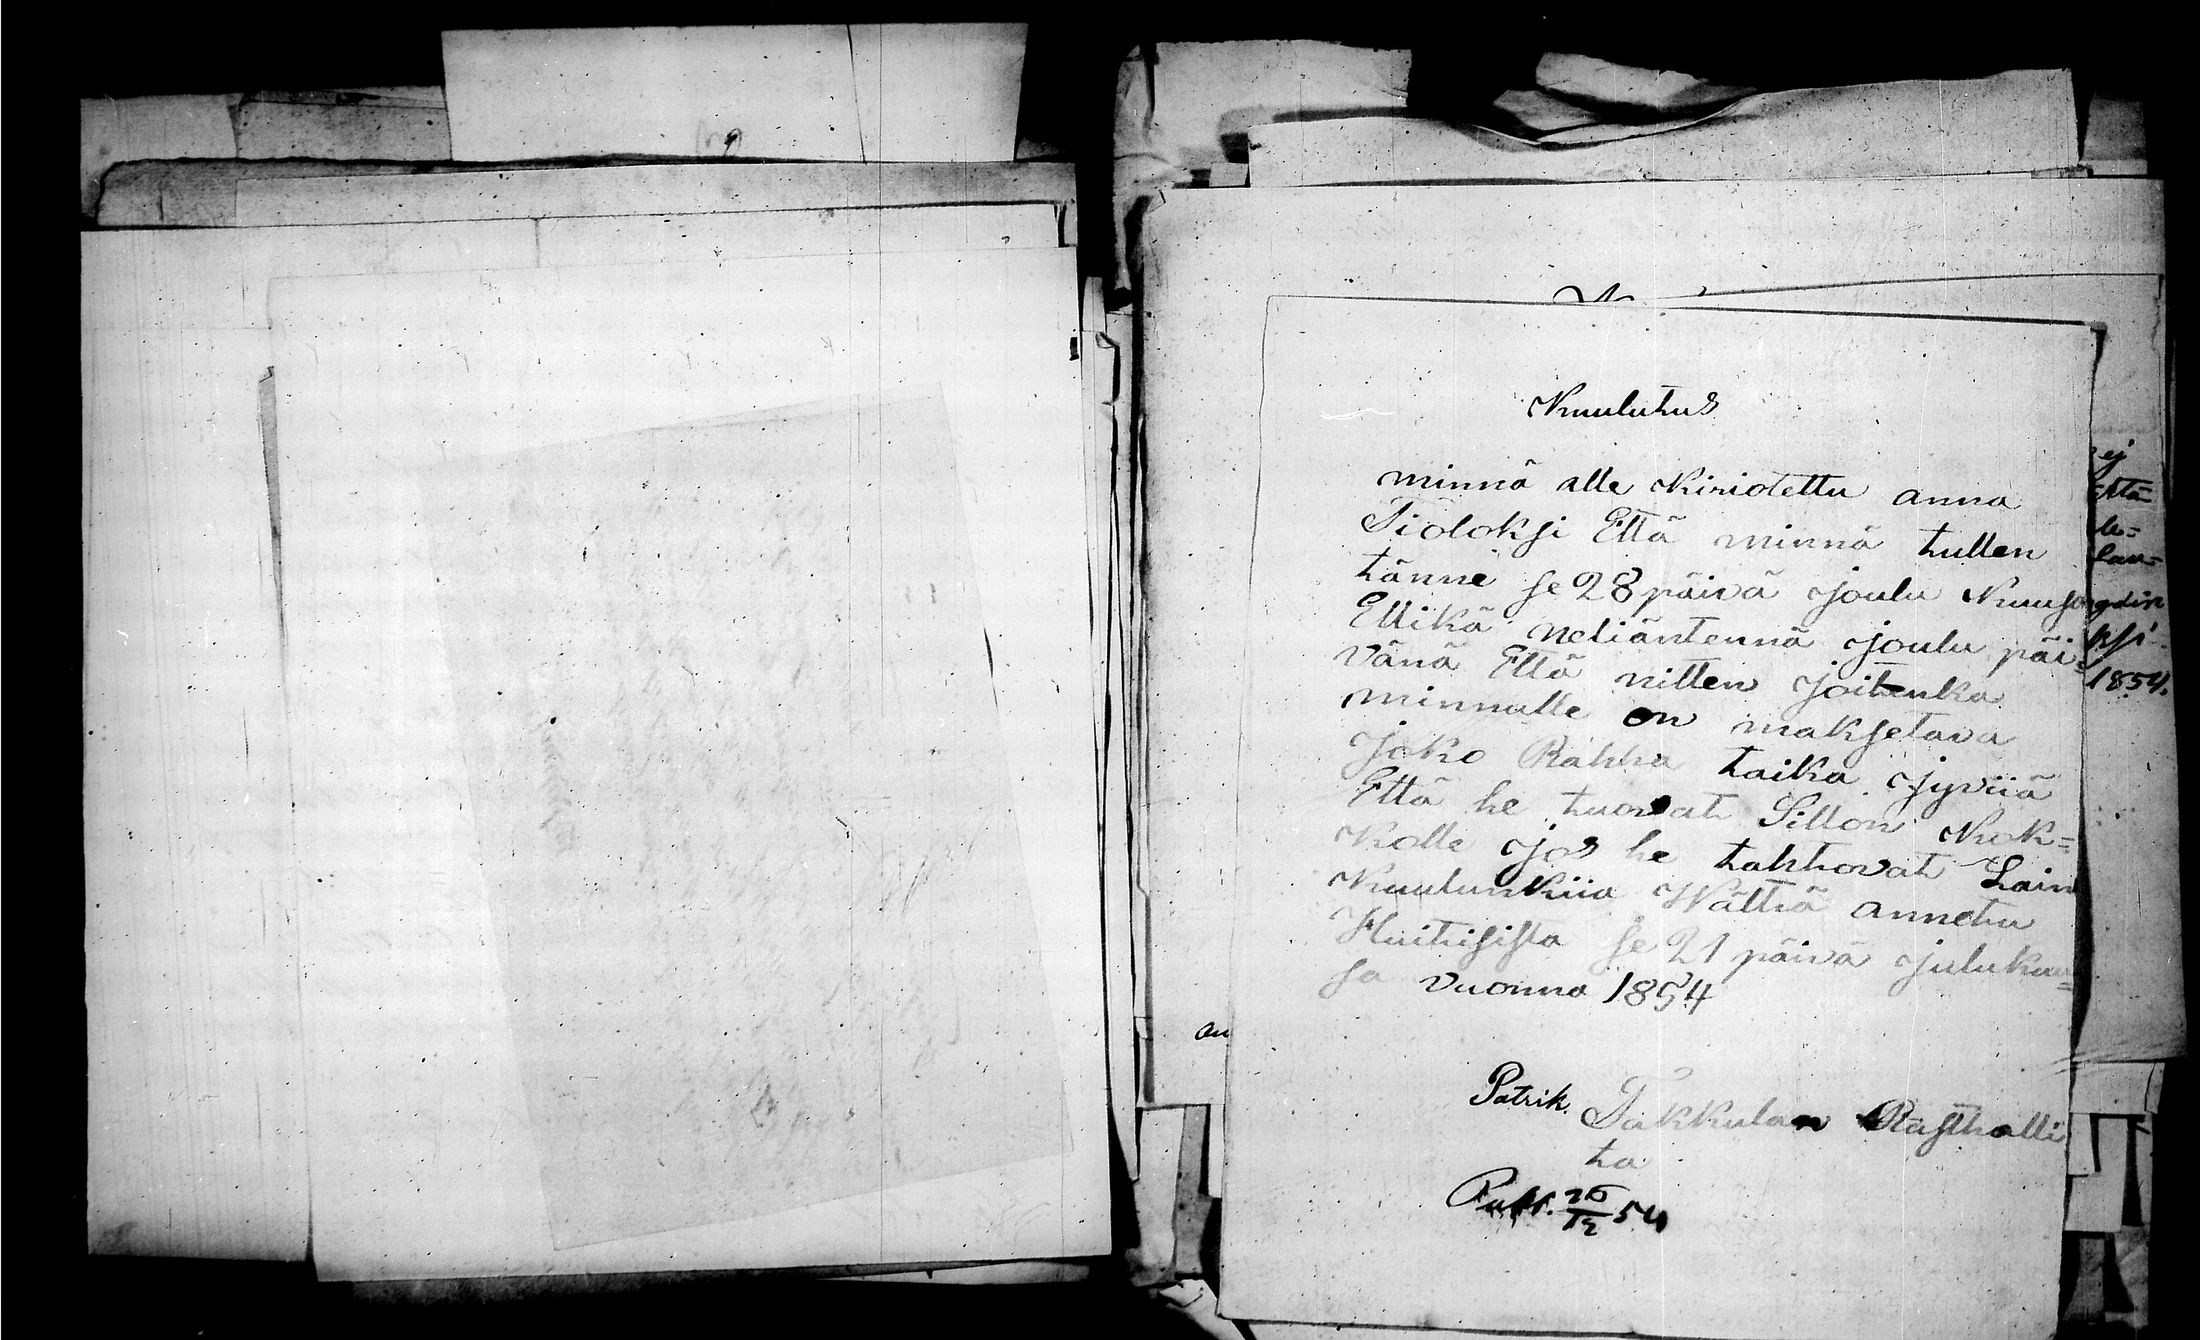 Kuulutus
minnä alle Kiriotettu anna
Tiöloksi Että minnä tullen
tänne se 28 päivä joulu Kuusa
Ellikä neljäntennä joulu päi=
vänä Että nitten joitenka
minnulle on maksetava
joko Rahha taika jyviiä
Että he tuovat Sillon Kok=
Kolle jos he tahtovat Lain
Kuulunkiia Wälttiä annettu
Huitisista se 21 päivä julukuu=
sa vuonna 1854
Patrik. Takkulan Rästhalli
ta
Publ. 26/12 54
ej
että
1854.